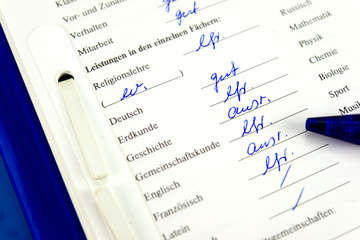 Vor- und Zuname
Verhalten gut
Mitarbeit gut
Leistungen in den einzelnen Fächern:
Religionslehre bfr.
(ev.)
Deutsch gut
Erdkunde bfr.
Geschichte ausr.
Gemeinschaftskunde bfr.
Englisch ausr.
Französisch bfr.
Latein /
/
Religion
Mathematik
Physik
Chemie
Biologie
Sport
Musik